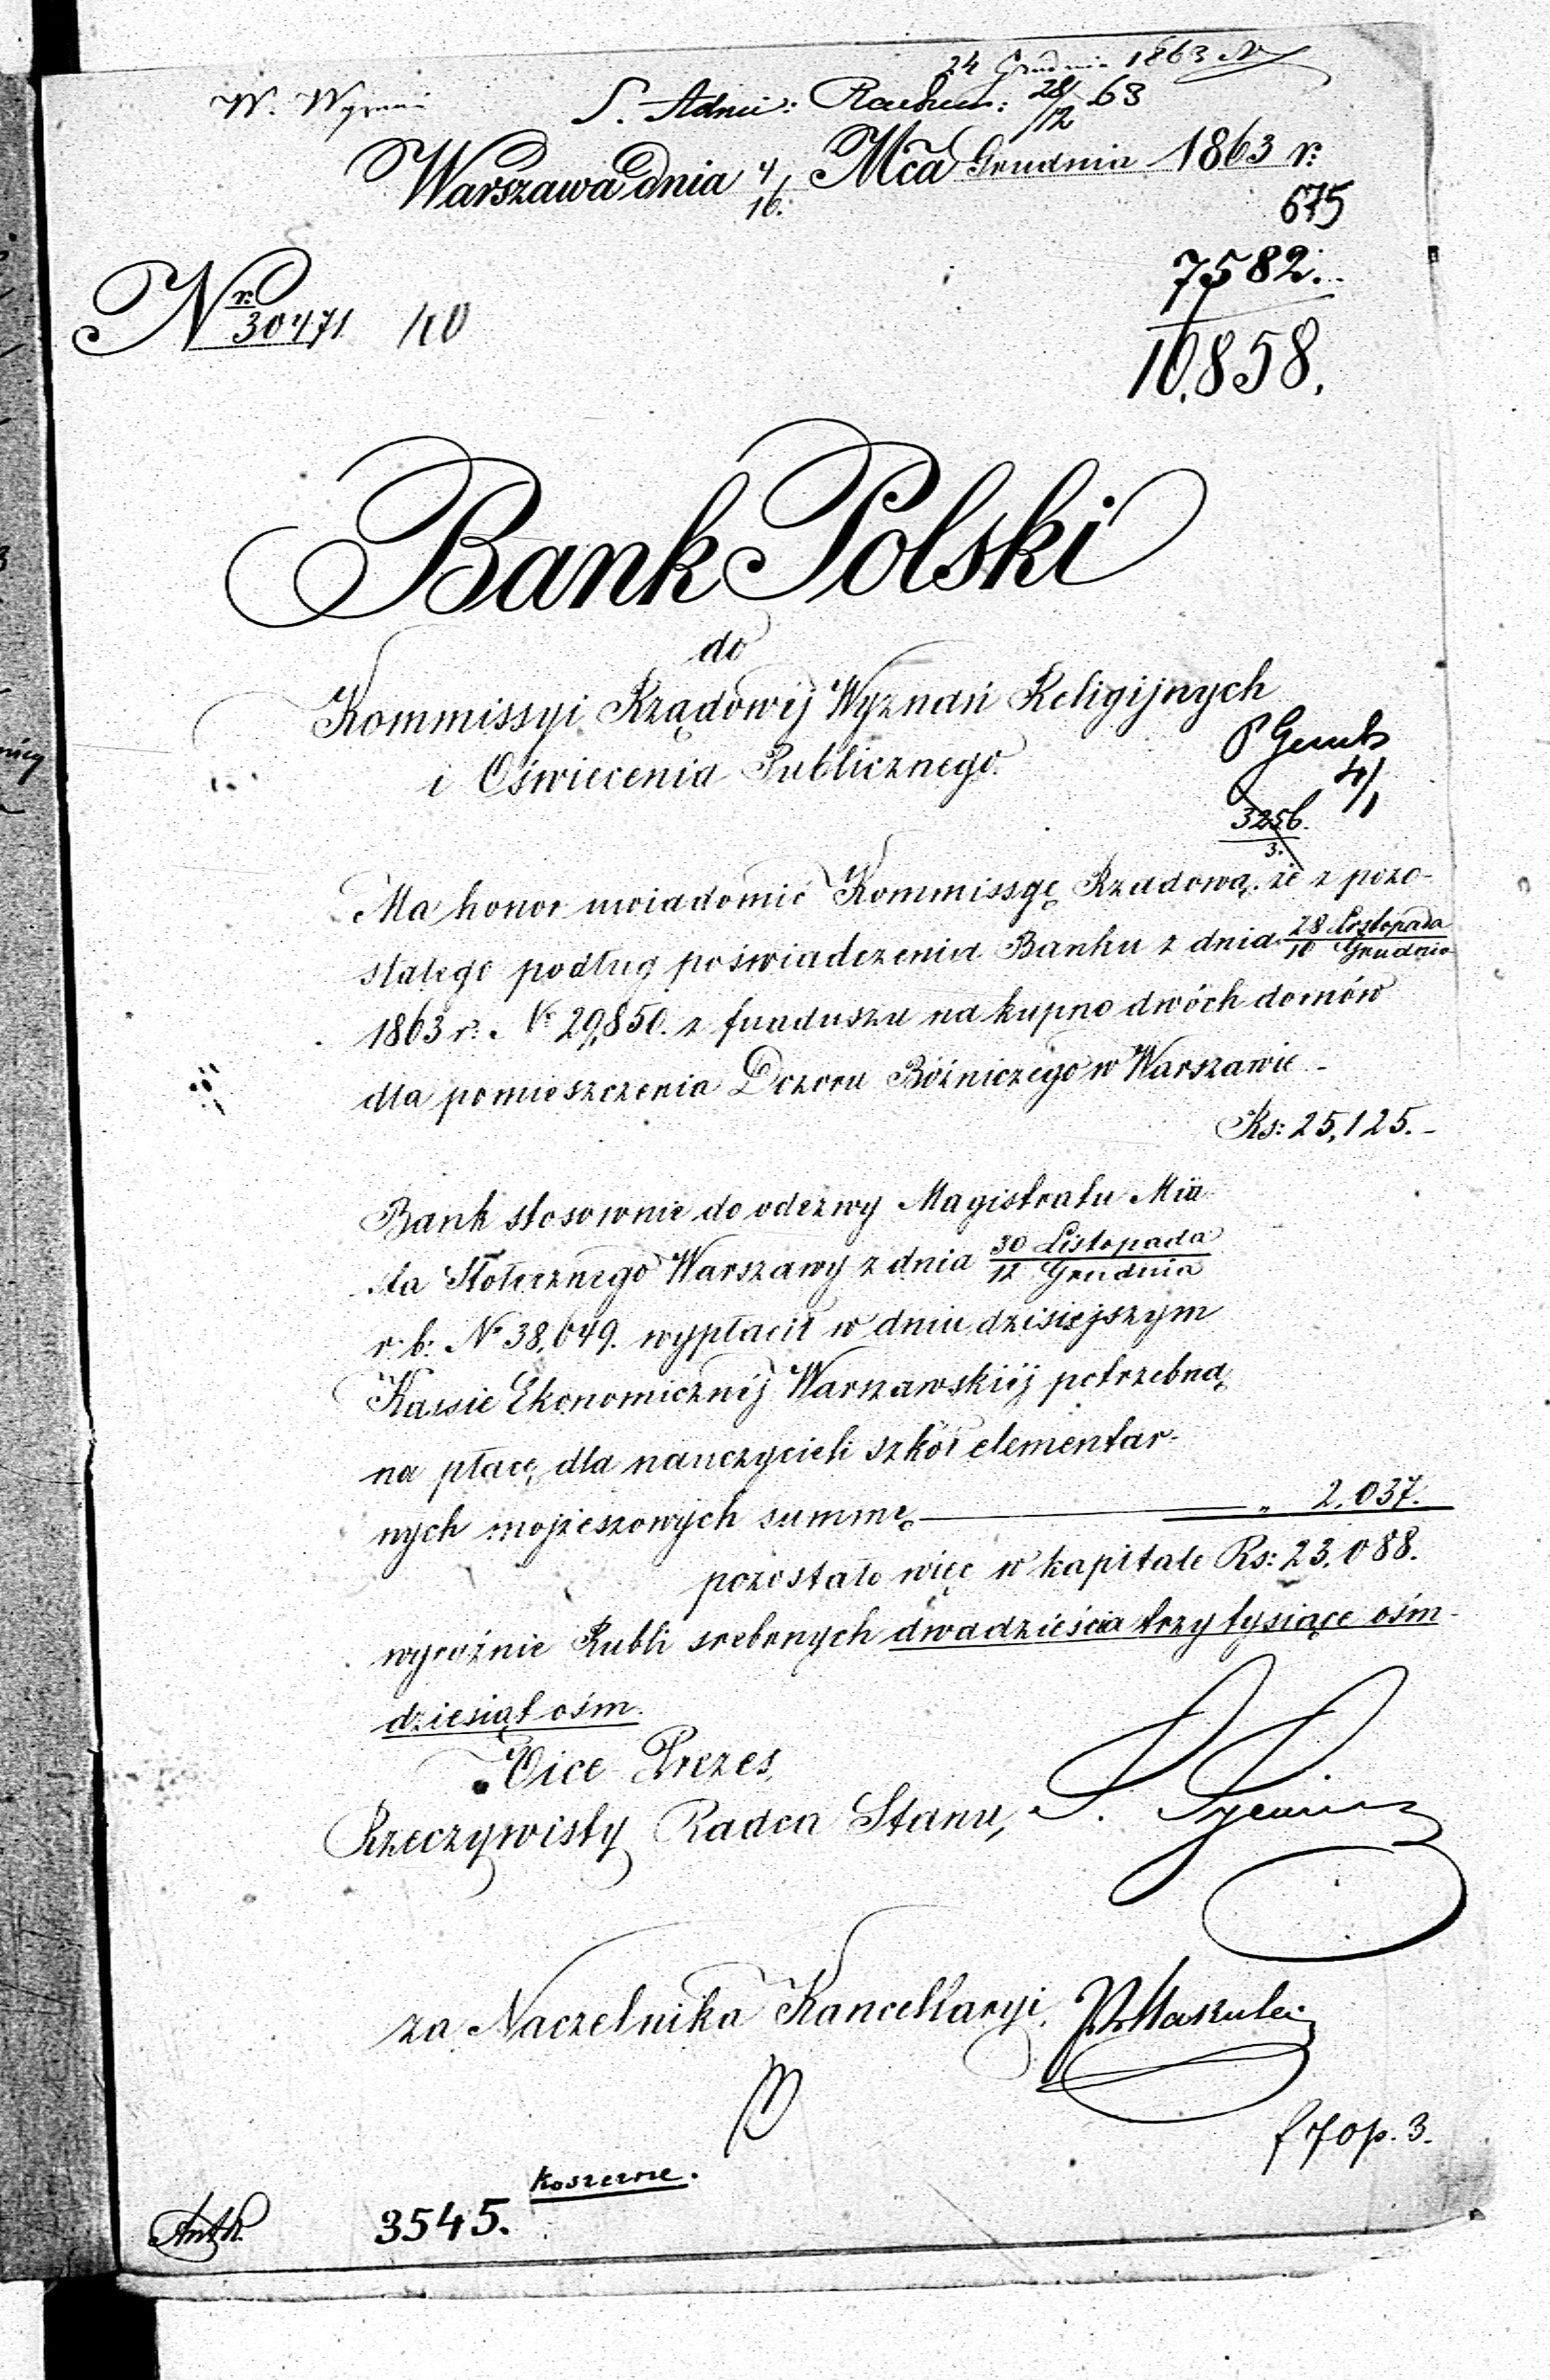 24 Grudnia 1863
S. Admi: Rachun: 28/12 63
Warszawa dnia 4/16. Mca Grudnia 1863 r:
675
Nr. 30471
7582.
10,858.
Bank Polski
do
Kommissyi Rządowéj Wyznań Religijnych
i Oświecenia Publicznego.
4/1
3256.
3.
Ma honor uwiadomić Kommissyę Rządową, że z pozo-
stałego podług poświadczenia Banku z dnia 28 Listopada / 10 Grudnia
1863 r: No 29,850. z funduszu na kupno dwóch domów
dla pomieszczenia Dozoru Bóżniczego w Warszawie -
Rs: 25,125. -
Bank stosownie do odezwy Magistratu Mia-
sta Stołecznego Warszawy z dnia 30 Listopada / 12 Grudnia
r. b: No 38,649. wypłacił w dniu dzisiejszym
Kassie Ekonomicznéj Warszawskiéj potrzebną
na płacę dla nauczycieli szkół elementar-
nych mojżeszowych summę — „ 2,037.
pozostało więc w kapitale Rs: 23,088.
wyraźnie Rubli srebrnych dwadzieścia trzy tysiące ośm-
dziesiąt ośm.
Vice Prezes,
Rzeczywisty Radca Stanu,
za Naczelnika Kancellaryi,
f 70p. 3.
Koszerne.
3545.